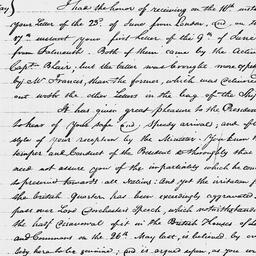 I had the honor of receiving on the 10th inst
your Letter of the 23d of June from London, and on
17th instant your first letter of the 9th of June
from Falmouth. Both of them came by the Active
Capt Blair; but the latter was brought more
by Mr Francis, than the former, which was delivered
out with the other Letters in the bag of the Ship
It has given great pleasure to the President
to hear of your safe and speedy arrival; and
style of your reception by the Minister. You know
temper and Conduct of the President so thoroughly that
need not assure you of the impartiality which he
to present towards all Nations: And yet the irritation
the British Quarter has been exceedingly aggravated
pass over Lord Dorchester's Speech, which notwithstanding
the half disavowals of it in the British Houses of
and Commons on the 26th May last, is believed by
body here to be genuine, and is argued upon, as you